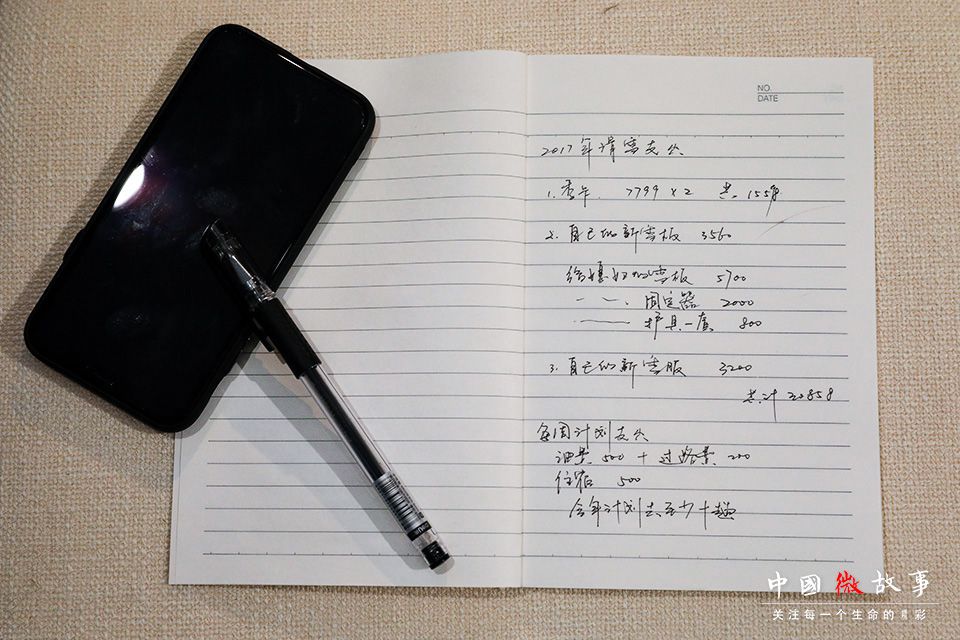 NO.
DATE
2017年滑雪支出
1. 季卡. 7799 x 2 共. 15598
2. 自己的新雪板 3560
给媳妇的雪板 5700
一 一 、 固定器 2000
—— 护具一套 800
3. 自己的新雪服 3200
共计 30858
每周计划支出
油费 500 + 过路费 200
住宿 500
今年计划去至少十趟
中國微故事
关注每一个生命的精彩